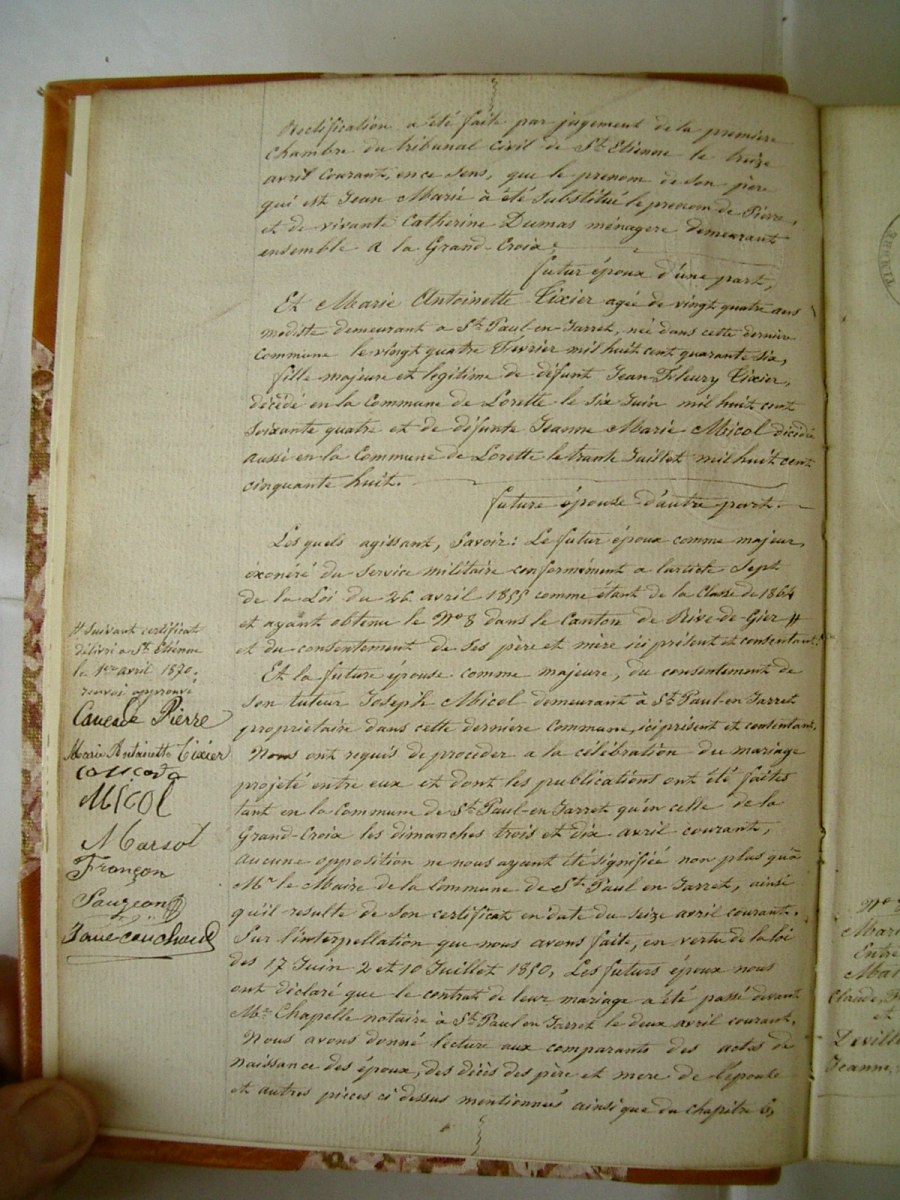 Rectification a été faite par jugement de la première
Chambre du tribunal Civil de St Etienne le treize
avril Courant, en ce sens, que le prenom de son père
qui est Jean Marie à été Substitué le prenom de Pierre,
et de vivante Catherine Dumas ménagere demeurant
ensemble a la Grand-Croix;
futur époux d'une part,
Et Marie Antoinette Tixier agée de vingt quatre ans
modiste demeurant a St Paul-en-Jarret, née dans cette dernière
Commune le vingt quatre Fevrier mil huit cent quarante six,
fille majeure et legitime de défunt Jean Fleury Tixier,
décédé en la Commune de Lorette le six Juin mil huit cent
Soixante quatre et de défunte Jeanne Marie Micol décédée
aussi en la Commune de Lorette le trente Juillet mil huit cent
cinquante huit.
future épouse d'autre part.
Les quels agissant, Savoir: Le futur époux comme majeur,
éxonéré du service militaire conformément a l'article Sept
de la Loi du 26 avril 1855 comme étant de la Classe de 1864
et ayant obtenu le No 8 dans le Canton de Rive-de-Gier #
et du consentement de Ses père et mère ici présent et consentant.
Et la future épouse comme majeure, du consentement de
Son tuteur Joseph Micol demeurant à St Paul-en-Jarret
propriétaire dans cette dernière Commune, ici présent et contentant,
Nous ont requis de procéder a la célébration du mariage
projeté entre eux et dont les publications ont été faites
tant en la Commune de St Paul-en-Jarret qu'en celle de la
Grand-Croix les dimanches trois et dix avril courant,
aucune opposition ne nous ayant été signifiée non plus qu'à
Mr le Maire de la Commune de St Paul en Jarret, ainsi
qu'il resulte de Son certificat en date du Seize avril courant.
Sur l'interpellation que nous avons faite, en vertu de la loi
des 17 Juin 2 et 10 Juillet 1850, Les futurs époux nous
ont déclaré que le contrat de leur mariage a été passé devant
Me Chapelle notaire à St Paul en Jarret le deux avril courant.
Nous avons donné lecture aux comparants des actes de
naissance des époux, des décès des père et mere de l'épouse
et autres pièces ci dessus mentionnées ainsi que du chapitre 6,
# Suivant certificat
délivré a St Etienne
le 1er avril 1870.
renvoi approuvé
Pierre
Marie Antoinette Tixier
MICOL
Marsot
Françon
No
Mari
Entre
Claude, F
et
Deville
Jeanne,
TIMBRE